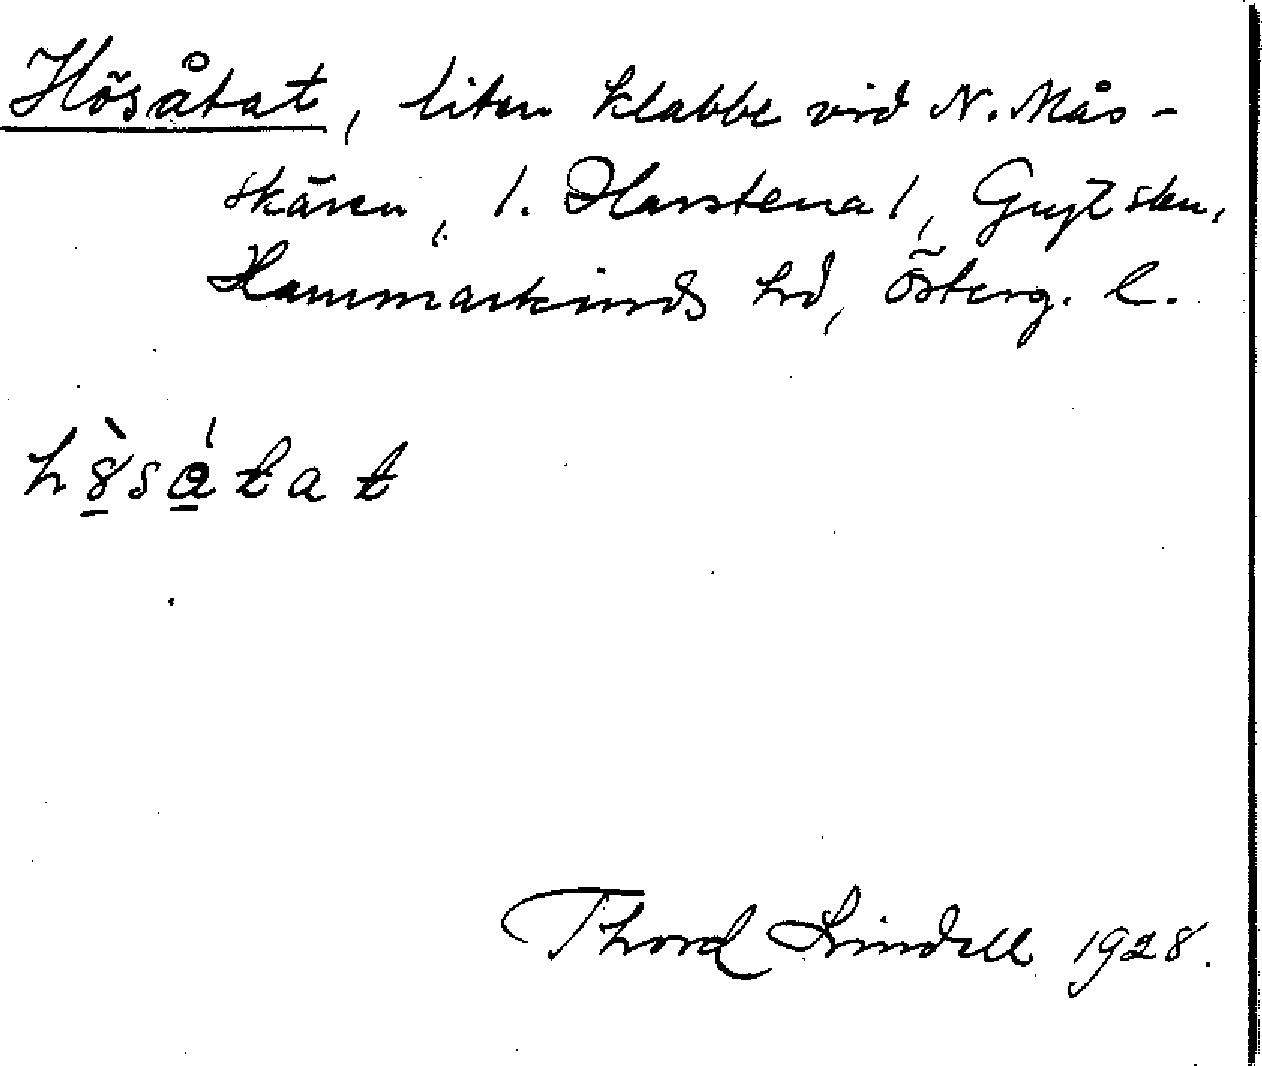 Hösåtat, liten klabbe vid N. Mås-
skären, /. Harstena/, Gryts skn,
Hammarkinds hd, Österg. l.
hö̀såtat
Thord Lindell 1928.